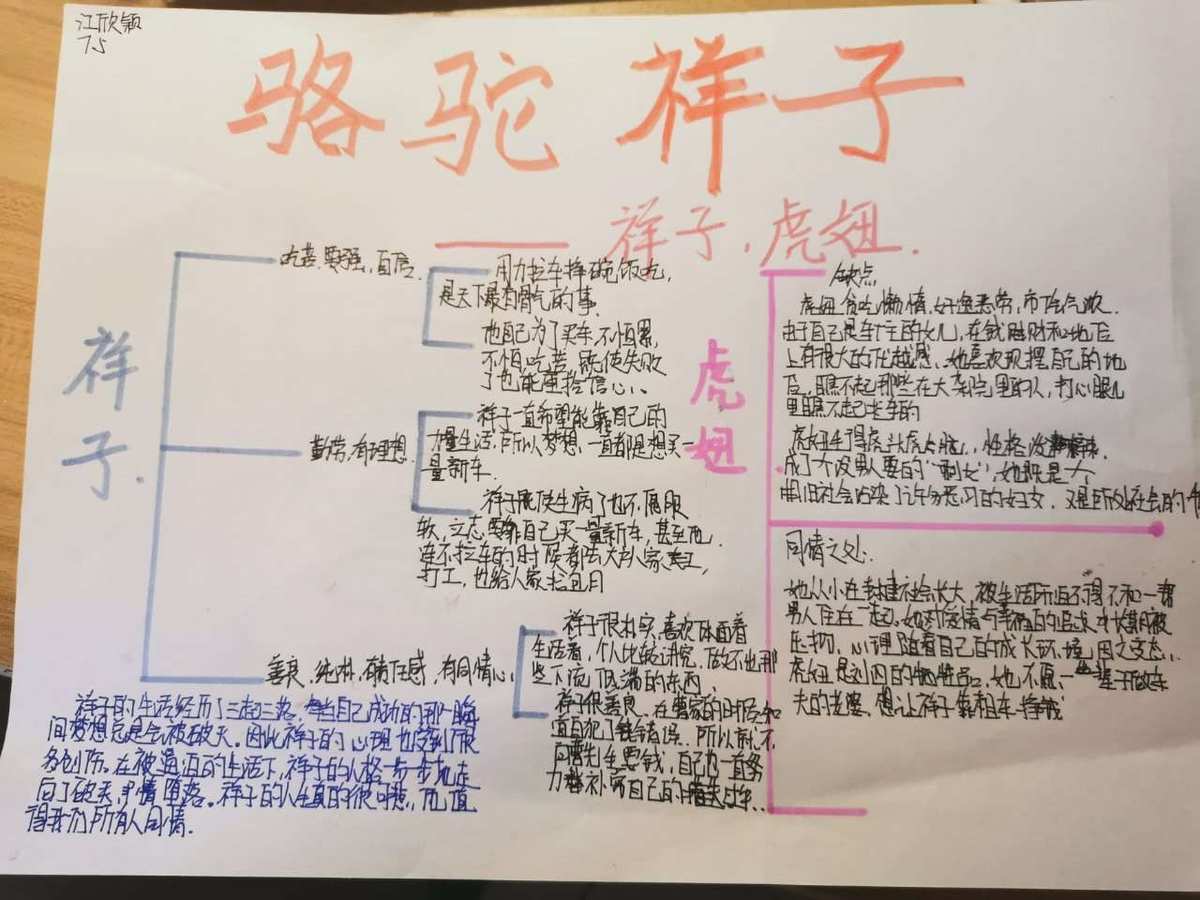 江欣颖
75
骆驼祥子
祥子,虎妞.
祥子.
吃苦,要强,自信.
用力拉车挣碗饭吃,
是天下最有骨气的事.
他自己为了买车不怕累,
不怕吃苦 既使失败
了也能重拾信心.
勤劳,有理想
祥子一直希望能靠自己的
力量生活,所以梦想一直都是想买一
量新车.
祥子既使生病了也不屈服
软,立志要靠自己买一量新车,甚至他
连不拉车的时候都去大户人家
打工,也给人家拉包月
善良,纯朴,有责任感,有同情心.
祥子很扎实,喜欢体面着
生活着,个人比较讲究,做不出那
些下流,低端的东西,
祥子很善良,在曹家的时候知
道自犯了错,所以就不
向曹先生要钱,自己一直努
力弥补,写自己的
祥子的生活经历了三起三落,每当自己成功的那一瞬
间梦想总是会被破灭.因此祥子的心理也受到了很
多创伤.在被逼迫的生活下,祥子的人格一步一步地走
向了破灭,堕落.祥子的人生真的很可悲,他值
得我们所有人同情.
虎妞.
缺点
虎妞贪吃懒惰,好逸恶劳,市侩气浓.
由于自己是车厂主的女儿,在钱财和地位
上有很大的优越感.她喜欢现摆自己的地
位,瞧不起那些在大杂院里的人,打心眼儿
里瞧不起拉车的
虎妞生得虎头虎脑,性格泼辣
成了个没男人要的“剩女”,她既是个
由旧社会沾染了许多恶习的妇女,又是所处社会的
同情之处.
她从小在封建社会长大,被生活所迫不得不和一帮
男人住在一起.她对爱情与幸福的追求长期被
压抑,心理随着自己的成长环境,因之变态.
虎妞是刘四的牺牲品,她也不愿一
夫的老婆,想让祥子靠租车挣钱